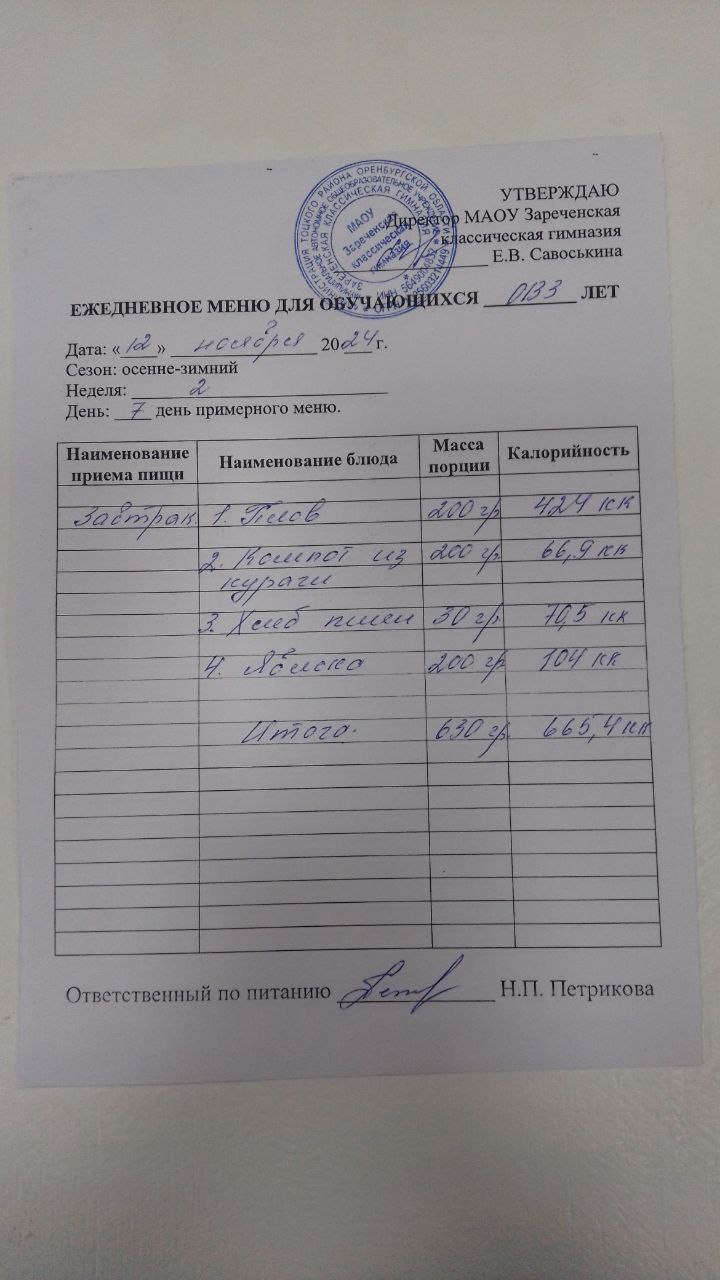 УТВЕРЖДАЮ
Директор МАОУ Зареченская
классическая гимназия
Е.В. Савоськина
МАОУ
Зареченская
классическая
гимназия
ЕЖЕДНЕВНОЕ МЕНЮ ДЛЯ ОБУЧАЮЩИХСЯ ОВЗ ЛЕТ
Дата: «12» ноября 2024 г.
Сезон: осенне-зимний
Неделя: 2
День: 7 день примерного меню.
Наименование приема пищи Наименование блюда Масса порции Калорийность
Завтрак 1. Плов 200 гр 424 кк
2. Компот из 200 гр 66,9 кк
кураги
3. Хлеб пшен 30 гр 70,5 кк
4. Яблоко 200 гр 104 кк
Итого. 630 гр. 665,4 кк
Ответственный по питанию Н.П. Петрикова